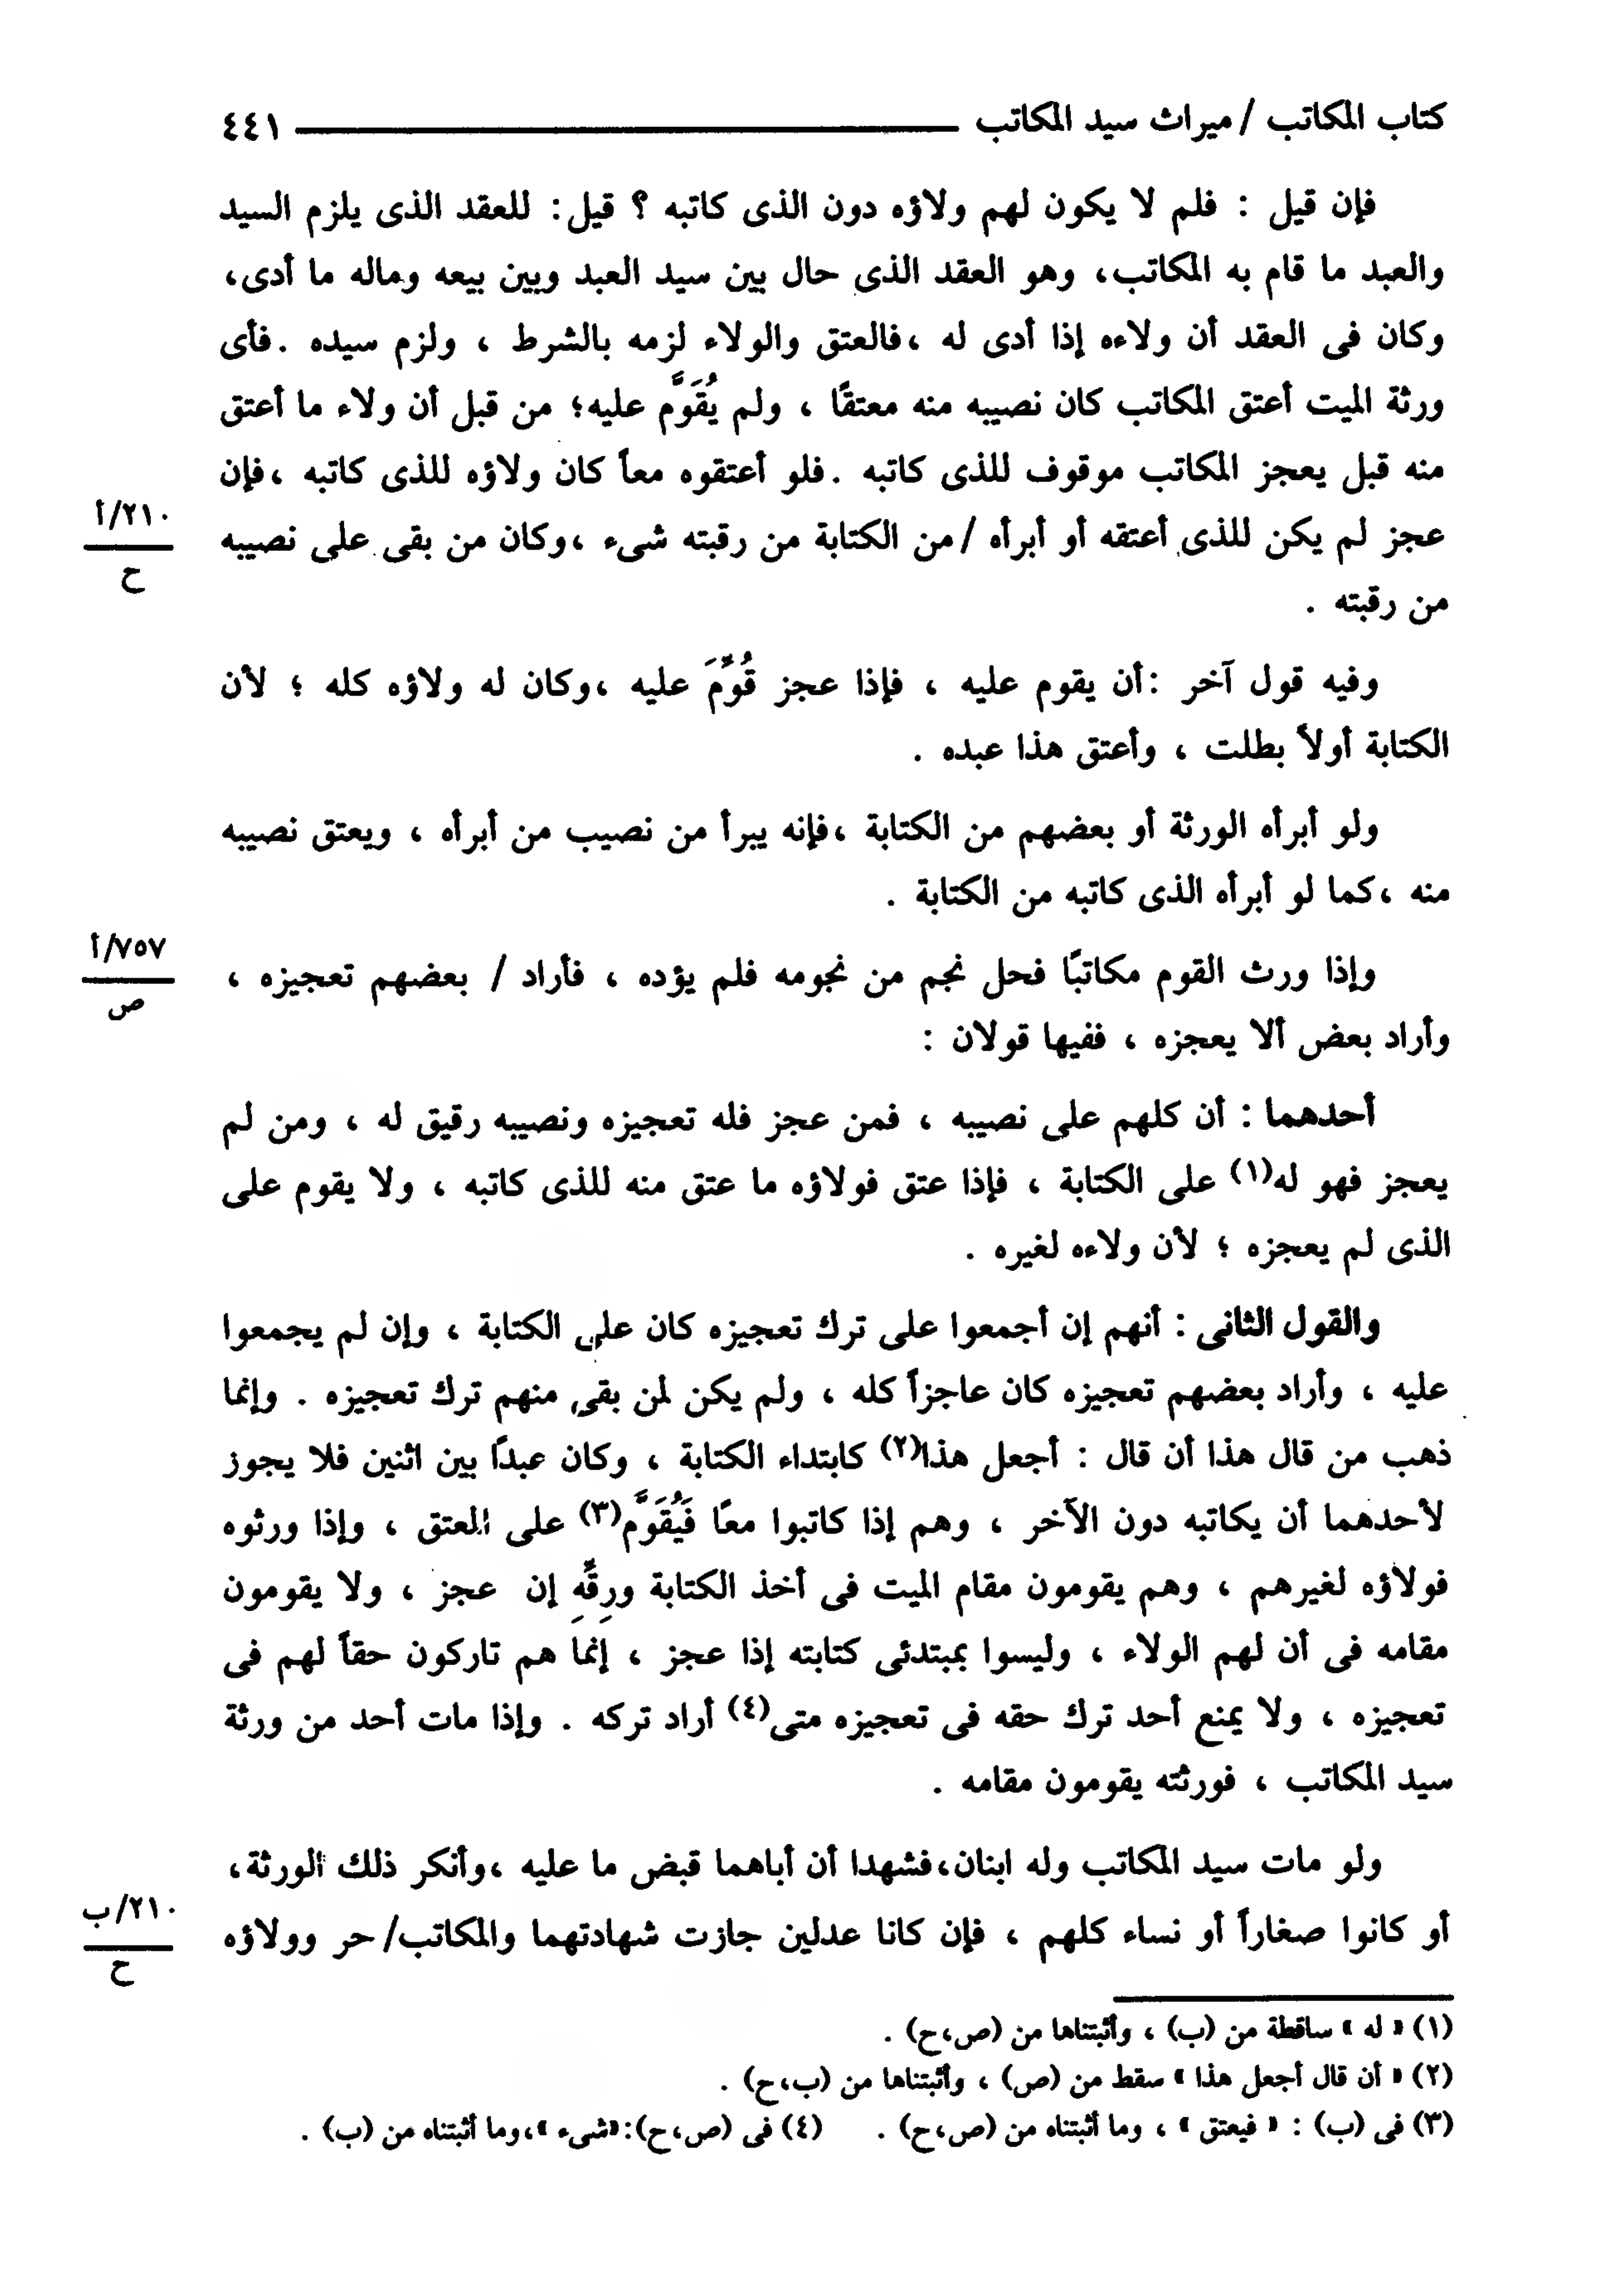 كتاب المكاتب / ميراث سيد المكاتب ٤٤١
فإن قيل : فلم لا يكون لهم ولاؤه دون الذى كاتبه ؟ قيل: للعقد الذى يلزم السيد
والعبد ما قام به المكاتب، وهو العقد الذى حال بين سيد العبد وبين بيعه وماله ما أدى،
وكان فى العقد أن ولاءه إذا أدى له ،فالعتق والولاء لزمه بالشرط ، ولزم سيده .فأى
ورثة الميت أعتق المكاتب كان نصيبه منه معتقًا ، ولم يُقَوَّم عليه؛ من قبل أن ولاء ما أعتق
منه قبل يعجز المكاتب موقوف للذى كاتبه .فلو أعتقوه معاً كان ولاؤه للذى كاتبه ،فإن
عجز لم يكن للذى أعتقه أو أبرأه /من الكتابة من رقبته شىء ،وكان من بقى على نصيبه
٢١٠/أ
ح
من رقبته .
وفيه قول آخر :أن يقوم عليه ، فإذا عجز قُوِّمَ عليه ،وكان له ولاؤه كله ؛ لأن
الكتابة أولاً بطلت ، وأعتق هذا عبده .
ولو أبرأه الورثة أو بعضهم من الكتابة ،فإنه يبرأ من نصيب من أبرأه ، ويعتق نصيبه
منه ،كما لو أبرأه الذى كاتبه من الكتابة .
وإذا ورث القوم مكاتبًا فحل نجم من نجومه فلم يؤده ، فأراد / بعضهم تعجيزه ،
٧٥٧/أ
ص
وأراد بعض ألا يعجزه ، ففيها قولان :
أحدهما : أن كلهم على نصيبه ، فمن عجز فله تعجيزه ونصيبه رقيق له ، ومن لم
يعجز فهو له(١) على الكتابة ، فإذا عتق فولاؤه ما عتق منه للذى كاتبه ، ولا يقوم على
الذى لم يعجزه ؛ لأن ولاءه لغيره .
والقول الثانى : أنهم إن أجمعوا على ترك تعجيزه كان على الكتابة ، وإن لم يجمعوا
عليه ، وأراد بعضهم تعجيزه كان عاجزاً كله ، ولم يكن لمن بقى منهم ترك تعجيزه . وإنما
ذهب من قال هذا أن قال : أجعل هذا(٢) كابتداء الكتابة ، وكان عبدًا بين اثنين فلا يجوز
لأحدهما أن يكاتبه دون الآخر ، وهم إذا كاتبوا معًا فَيُقَوَّم(٣) على المعتق ، وإذا ورثوه
فولاؤه لغيرهم ، وهم يقومون مقام الميت فى أخذ الكتابة ورِقِّهِ إن عجز ، ولا يقومون
مقامه فى أن لهم الولاء ، وليسوا بمبتدئى كتابته إذا عجز ، إنما هم تاركون حقاً لهم فى
تعجيزه ، ولا يمنع أحد ترك حقه فى تعجيزه متى(٤) أراد تركه . وإذا مات أحد من ورثة
سيد المكاتب ، فورثته يقومون مقامه .
ولو مات سيد المكاتب وله ابنان،فشهدا أن أباهما قبض ما عليه ،وأنكر ذلك الورثة،
أو كانوا صغاراً أو نساء كلهم ، فإن كانا عدلين جازت شهادتهما والمكاتب/حر وولاؤه
٢١٠/ب
ح
(١) « له » ساقطة من (ب) ، وأثبتناها من (ص،ح) .
(٢) « أن قال أجعل هذا » سقط من (ص) ، وأثبتناها من (ب،ح) .
(٣) فى (ب) : « فيعتق » ، وما أثبتناه من (ص،ح) . (٤) فى (ص،ح):«شىء »،وما أثبتناه من (ب) .